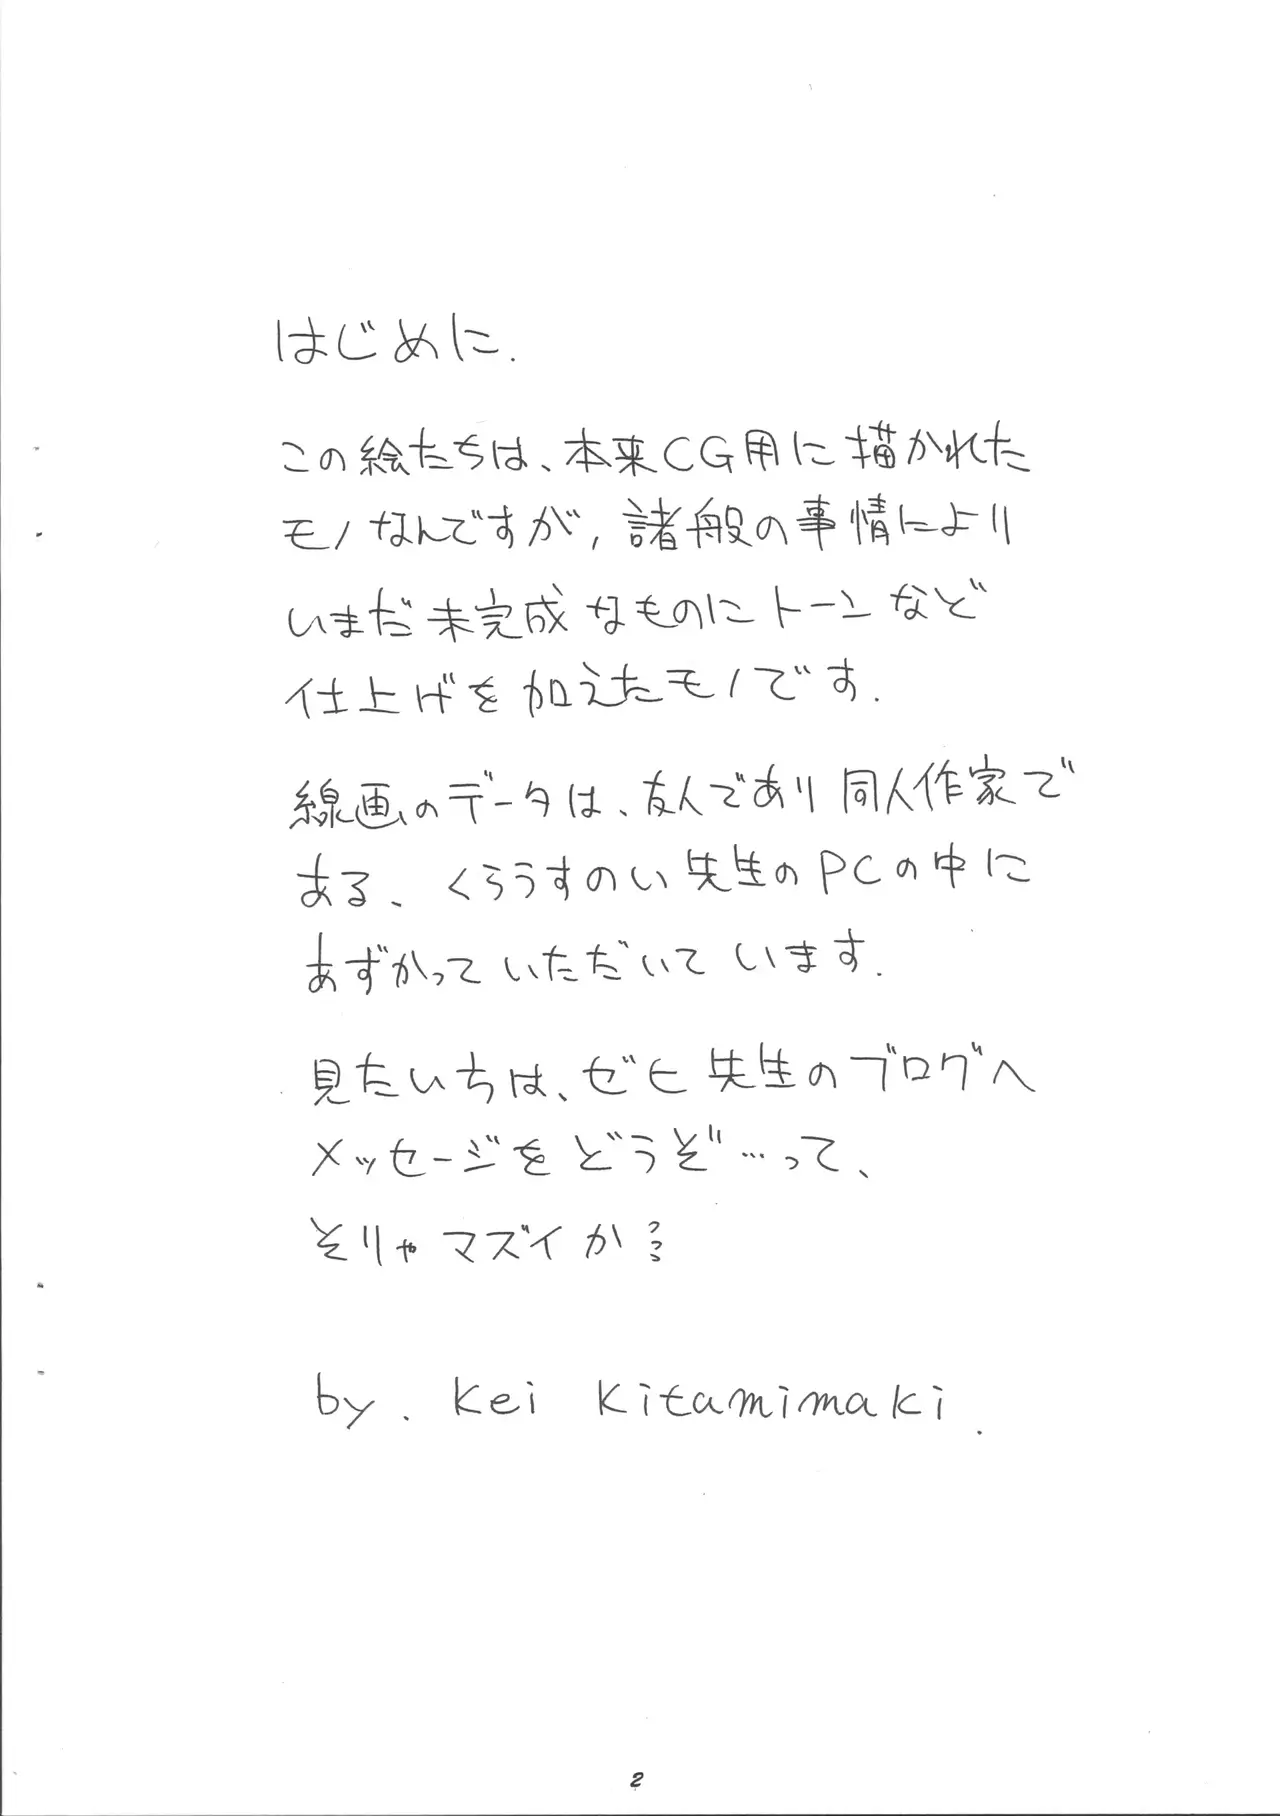 はじめに.
この絵たちは、本来CG用に描かれた
モノなんですが, 諸般の事情により
いまだ未完成なものにトーンなど
仕上げを加えたモノです.
線画のデータは、友人であり同人作家で
ある、くろうすのい先生のPCの中に
あずかっていただいています.
見たいちは、ゼヒ先生のブログへ
メッセージをどうぞ…って、
そりゃマズイか?
by. Kei Kitamimaki.
2